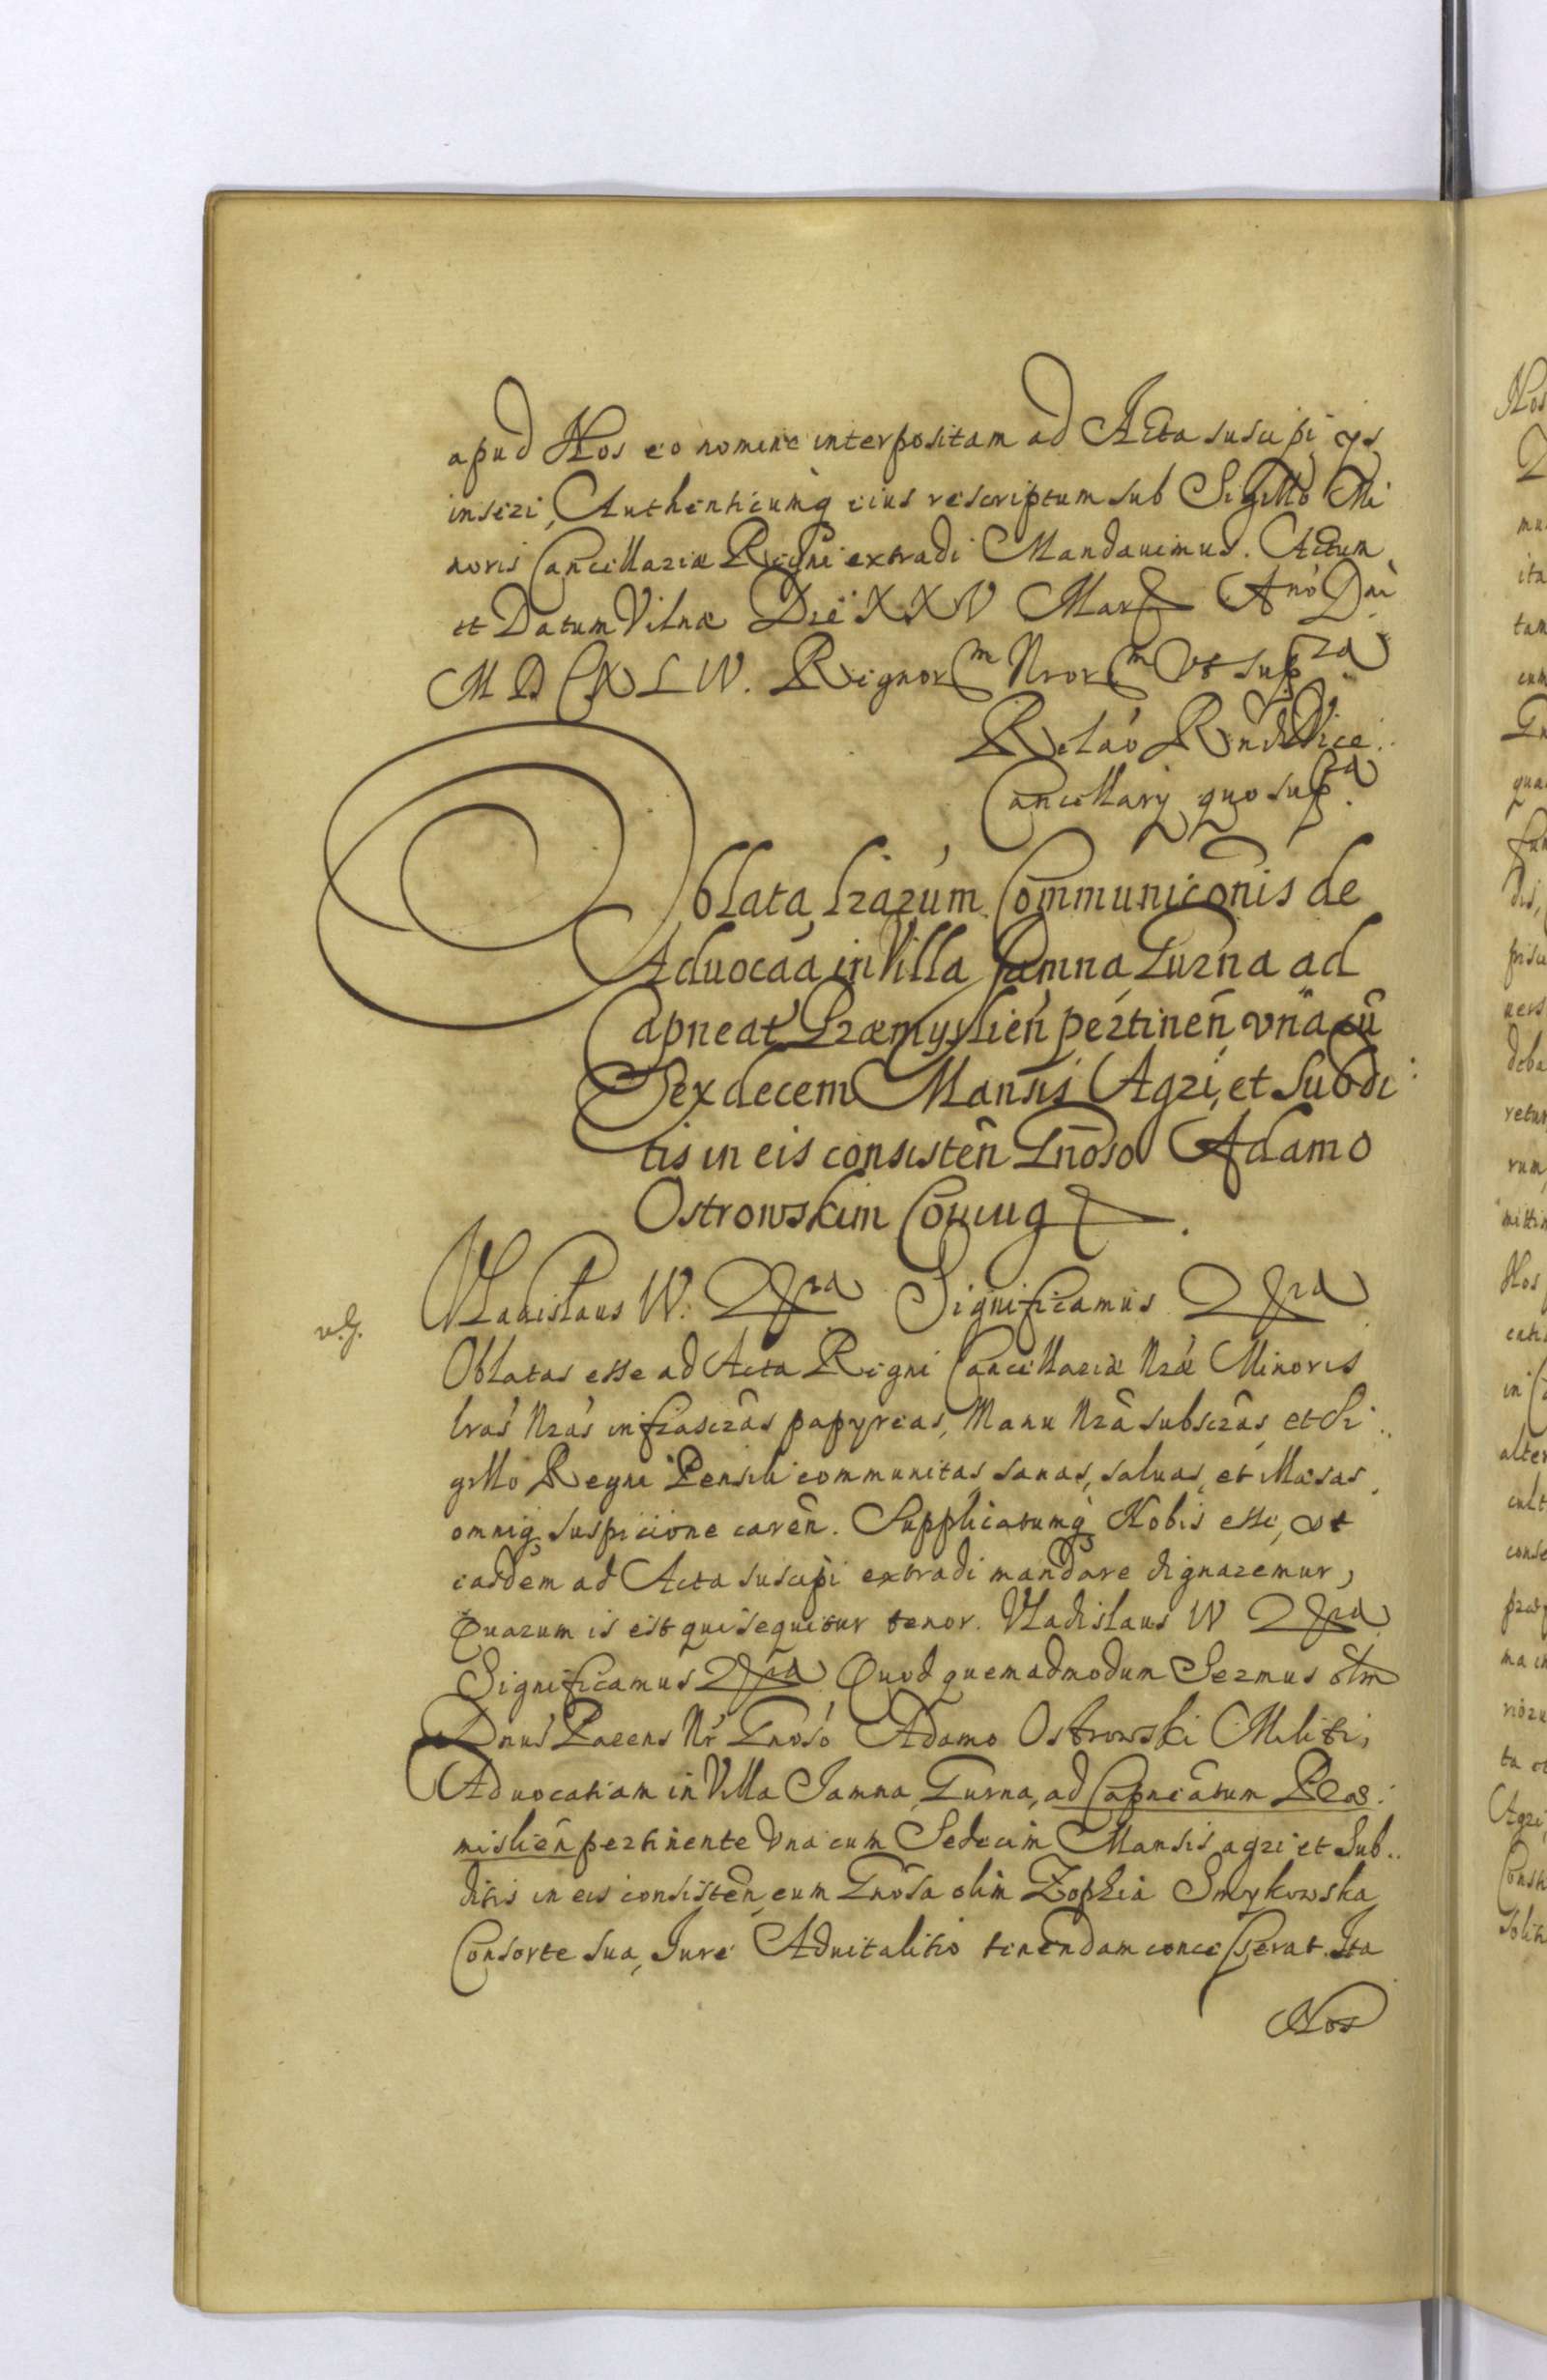 apud Nos eo nomine interpositam ad Acta suscipi, ijs
inseri, Authenticumq̃ eius rescriptum sub Sigillo Mi
noris Cancellariæ Regni extradi Mandauimus. Actum
et Datum Vilnæ Die XXV Mar Anō Dni
M D CXLIV. Regnorm Nrorm Vt supra
Relaō Rñdi Vice
Cancellarij quo supra.
Oblata Lrarum Communicōnis de
Aduocaã in Villa Jamna Gurna ad
Capneat Præmysлień pertineñ vna cũ
Sexdecem Mansis Agri, et Subdi
tis in eis consisteñ Gnōso Adamo
Ostrowskim Coniug
Vladislaus IV. Significamus
Oblatas esse ad Acta Regni Cancellariæ Nræ Minoris
lras Nras infrascrãs papyreas, Manu Nrã subscrãs, et Si
gillo Regni Pensili communitas, sanas, saluas, et illæsas,
omniq̃ suspicione careñ. Supplicatumq̃ Nobis esse, vt
easdem ad Acta suscipi extradi mandare dignaremur,
Quarum is est qui sequitur tenor. Vladislaus IV
Significamus Quod quemadmodum Sermus olim
Dnus Parens Nr Gnoso Adamo Ostrowski Militi,
Aduocatiam in Villa Jamna, Gurna, ad Capneãtum Præ
mislieñ pertinente vna cum Sedecim Mansis agri et Sub
ditis in eis consisteñ, cum Gnõsa olim Zophia Smykowska
Consorte sua, Iure Aduitalitio tenendam concesserat. Ita
Nos
v.g.